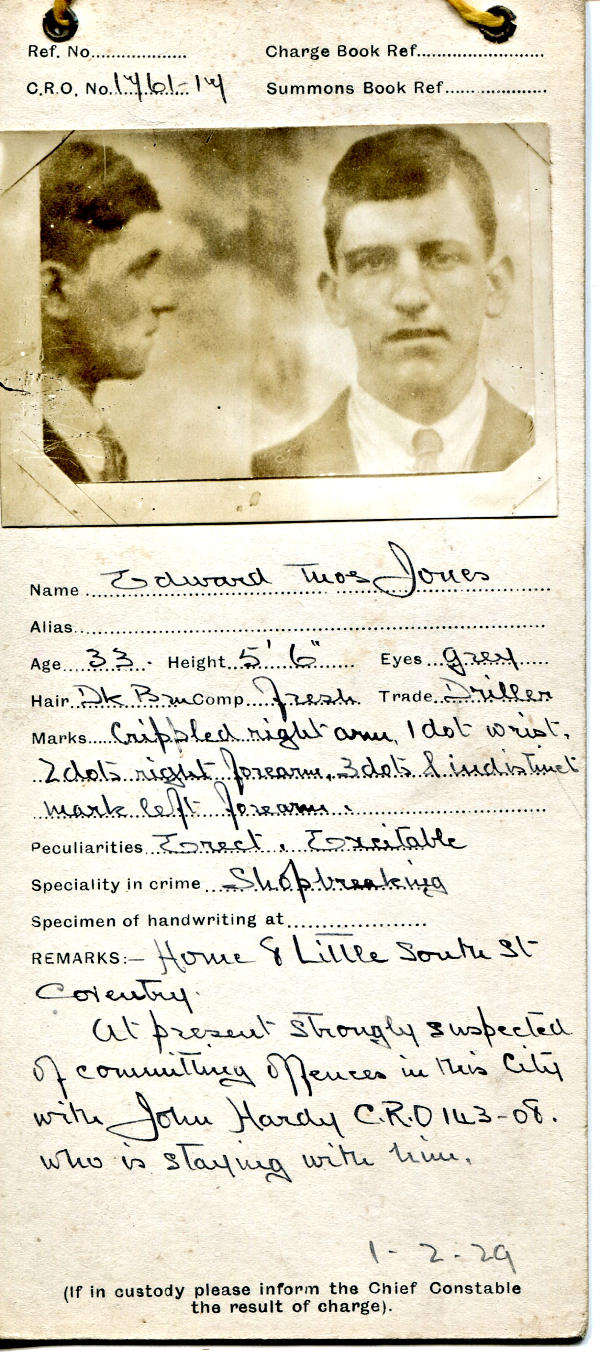 Ref. No.................. Charge Book Ref........................
C.R.O. No. 1761-14 Summons Book Ref...................
Name Edward Thos Jones
Alias
Age 33. Height 5' 6" Eyes grey
Hair Dk Brn Comp Fresh Trade Driller
Marks Crippled right arm, 1 dot wrist,
2 dots right forearm, 3 dots & indistinct
mark left forearm.
Peculiarities Erect, Excitable
Speciality in crime Shopbreaking
Specimen of handwriting at
REMARKS:— Home 8 Little South St
Coventry.
At present strongly suspected
of committing offences in this City
with John Hardy C.R.O 143-08.
who is staying with him.
1-2-29
(If in custody please inform the Chief Constable
the result of charge).